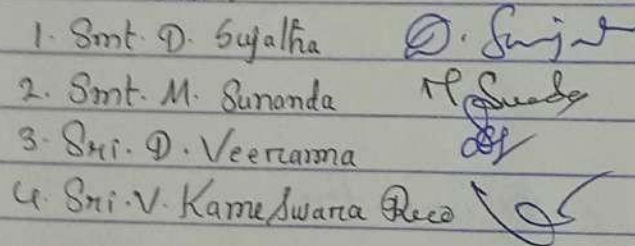 1. Smt. D. Sujatha D. Sujat
2. Smt. M. Sunanda M Sunanda
3. Sri. D. Veeranna
4. Sri. V. Kameswara Rao